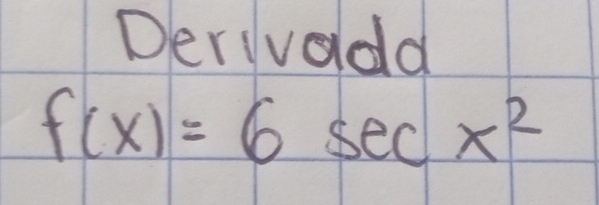 Derivada
f(x) = 6 sec x²